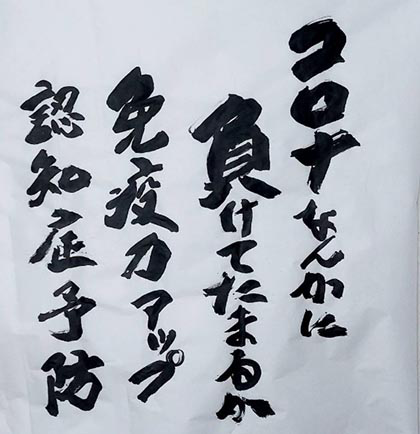 コロナなんかに
負けてたまるか
免疫力アップ
認知症予防